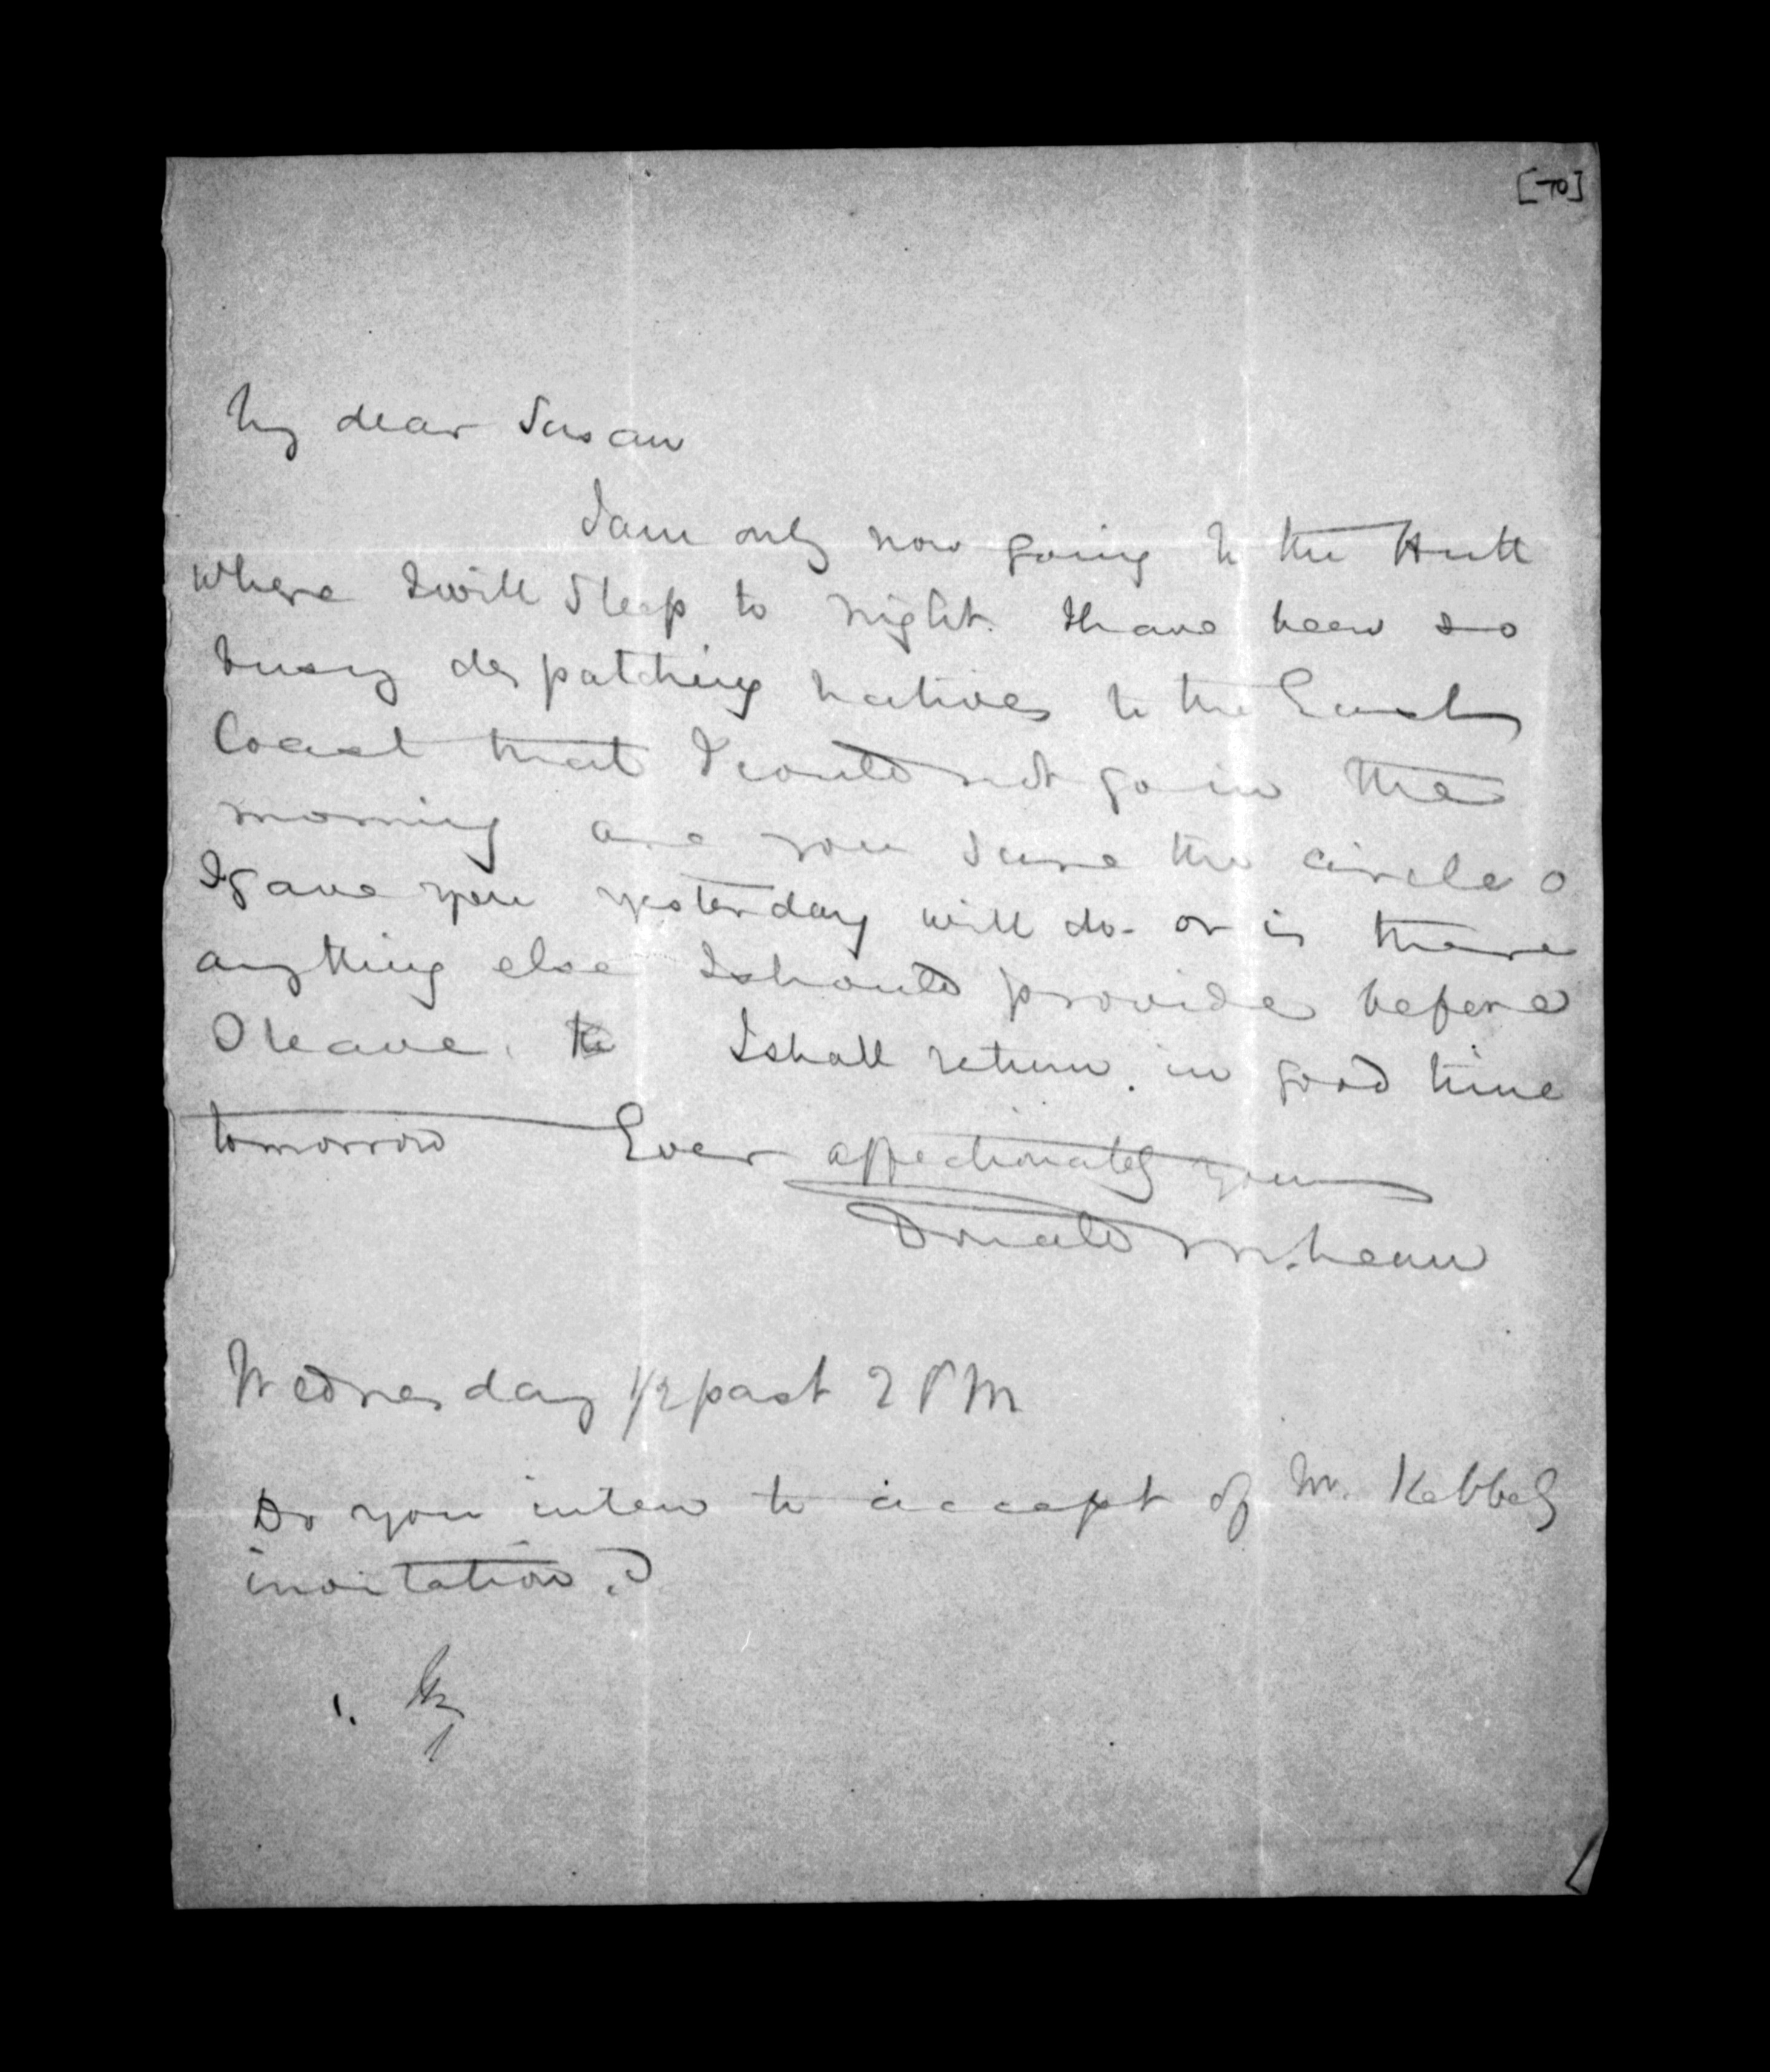 [70]
My dear Susan
I am only now going to the Hutt
where I will sleep to night. I have been so
busy despatching natives to the East
Coast that I could not go in the
morning are you sure the circle O
I gave you yesterday will do - or is there
anything else I should provide before
I leave. I shall return in good time
tomorrow Ever affectionately yours
Donald McLean
Wednesday 1/2 past 2 PM
Do you inten to accept of Mr. Kebbels
invitation.?